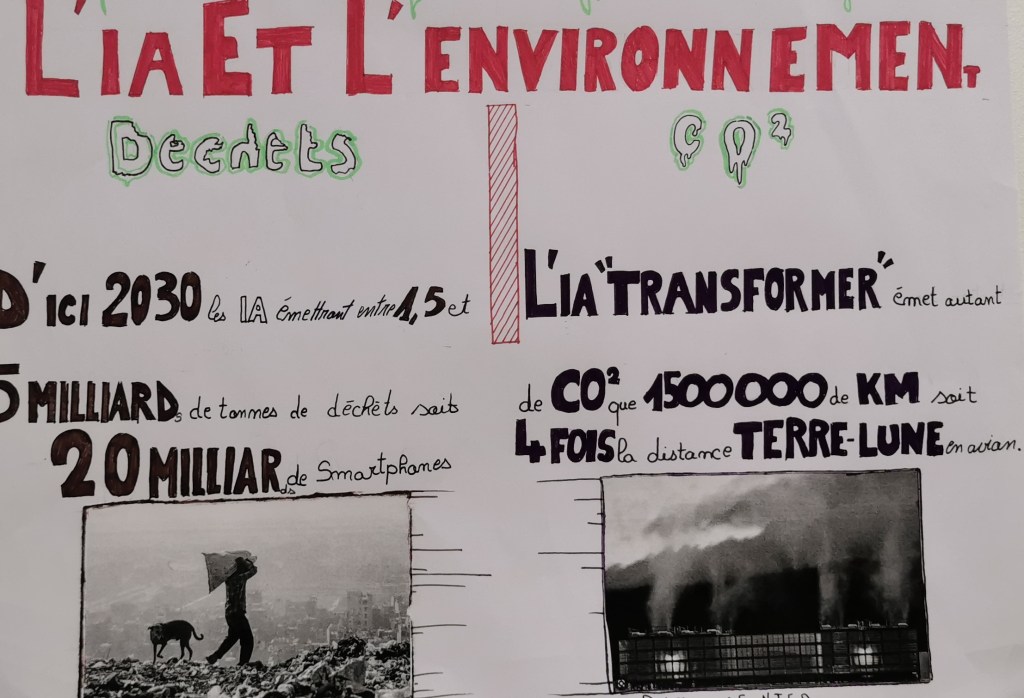 L'IA ET L'ENVIRONNEMENT
Dechets
CO²
D'ICI 2030 les IA émettront entre 1,5 et
5 MILLIARDs de tonnes de déchêts soits
20 MILLIARds de Smartphones
L'IA "TRANSFORMER" émet autant
de CO² que 1500000 de KM soit
4 FOIS la distance TERRE-LUNE en avion.